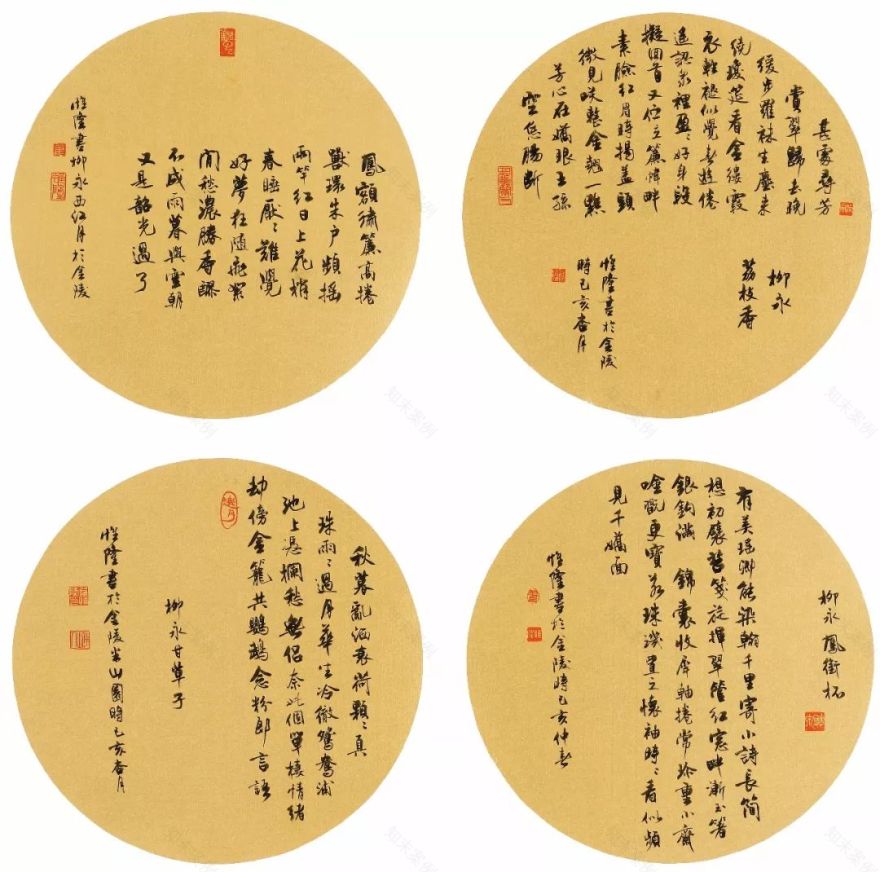 鳳額繡簾高捲
獸環朱户頻搖
兩竿紅日上花梢
春睡厭〻難覺
好夢狂隨飛絮
閒愁濃勝香醪
不成雨暮與雲朝
又是韶光過了
惟隆書柳永西江月於金陵
甚處尋芳
賞翠歸去晚
緩步羅襪生塵來
繞瓊筵看金縷霞
衣輕褪似覺春遊倦
遥認衆裡盈〻好身段
擬回首又佇立簾幃畔
素臉紅眉時揭蓋頭
微見笑整金翹一點
芳心在嬌眼王孫
空恁腸斷
柳永
荔枝香
惟隆書於金陵
時己亥杏月
秋暮亂洒衰荷顆〻真
珠雨〻過月華生冷徹鴛鴦浦
池上憑欄愁無侶奈此個單棲情緒
却傍金籠共鸚鵡念粉郎言語
柳永甘草子
惟隆書於金陵半山園時己亥杏月
柳永鳳銜杯
有美瑤卿能染翰千里寄小詩長簡
想初襞苔箋旋揮翠管紅窗畔漸玉箸
銀鉤滿 錦囊收犀軸捲常珍重小齋
吟玩更寶若珠璣置之懷袖時〻看似頻
見千嬌面
惟隆書於金陵時己亥仲春
知末案例
知末案例
知末案例
知末案例